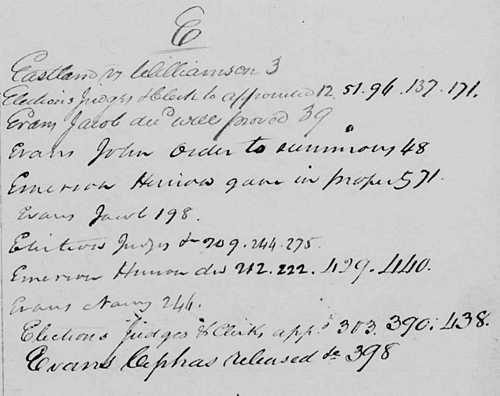 E
Eastland vs Williamson 3
Elections Judges & Clerk to appointed 12. 51. 96. 137. 171.
Evans Jacob decd will proved 39
Evans John order to summons 48
Emerson gave in 571.
Evans Jacob 198.
Election Judges &c 209. 244. 275.
Emerson 212. 222. 429. 440.
Evans 244.
Elections Judges & Clerks appd 303. 390. 438.
Evans Cephas released &c 398